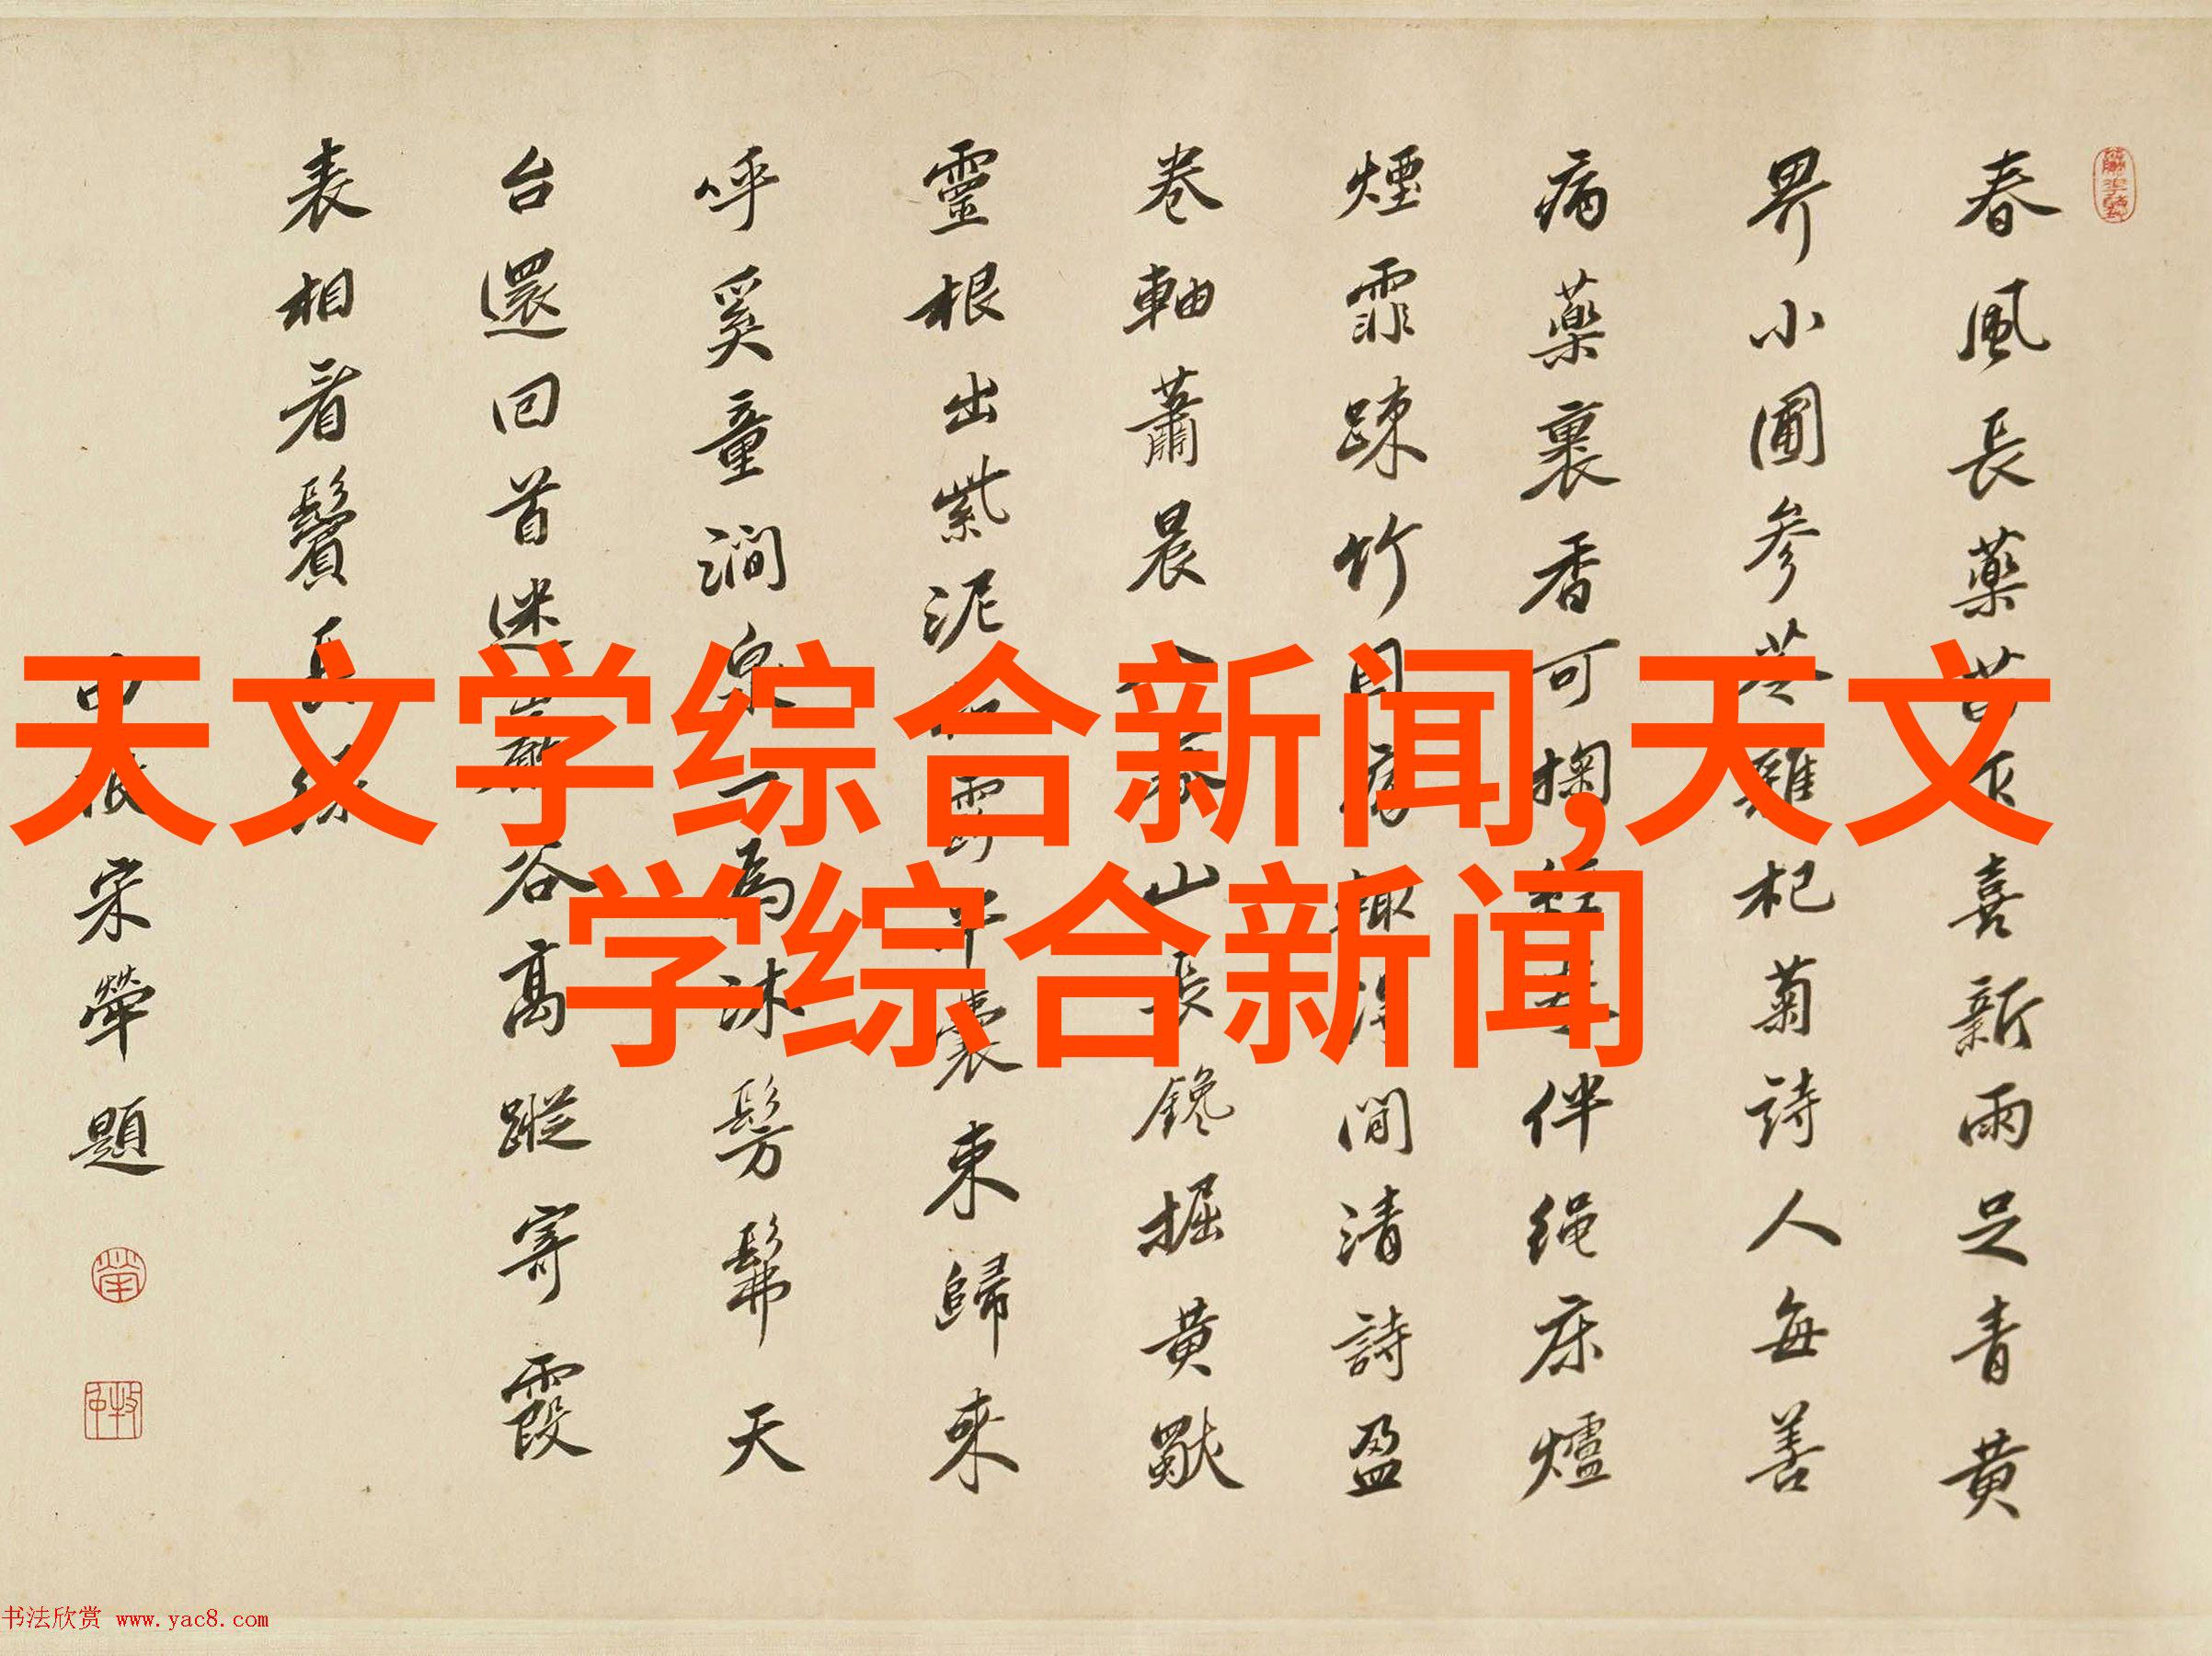 天文学综合新闻,天文
学综合新闻
春風長藥苗喜新雨足青黄
畀小圃參苓雜杞菊詩人每善
病藥裏香可掬伴绳床爐
煙霏踈竹目趣间清詩盈
卷軸蕭晨山長鑱掘黄獸
靈根出紫泥裹東歸来
呼奚童澗泉一為沐髣髴天
台還回首迷谷高蹤寄霞
表相看鬢
宋犖題
书法欣赏 www.yac8.com